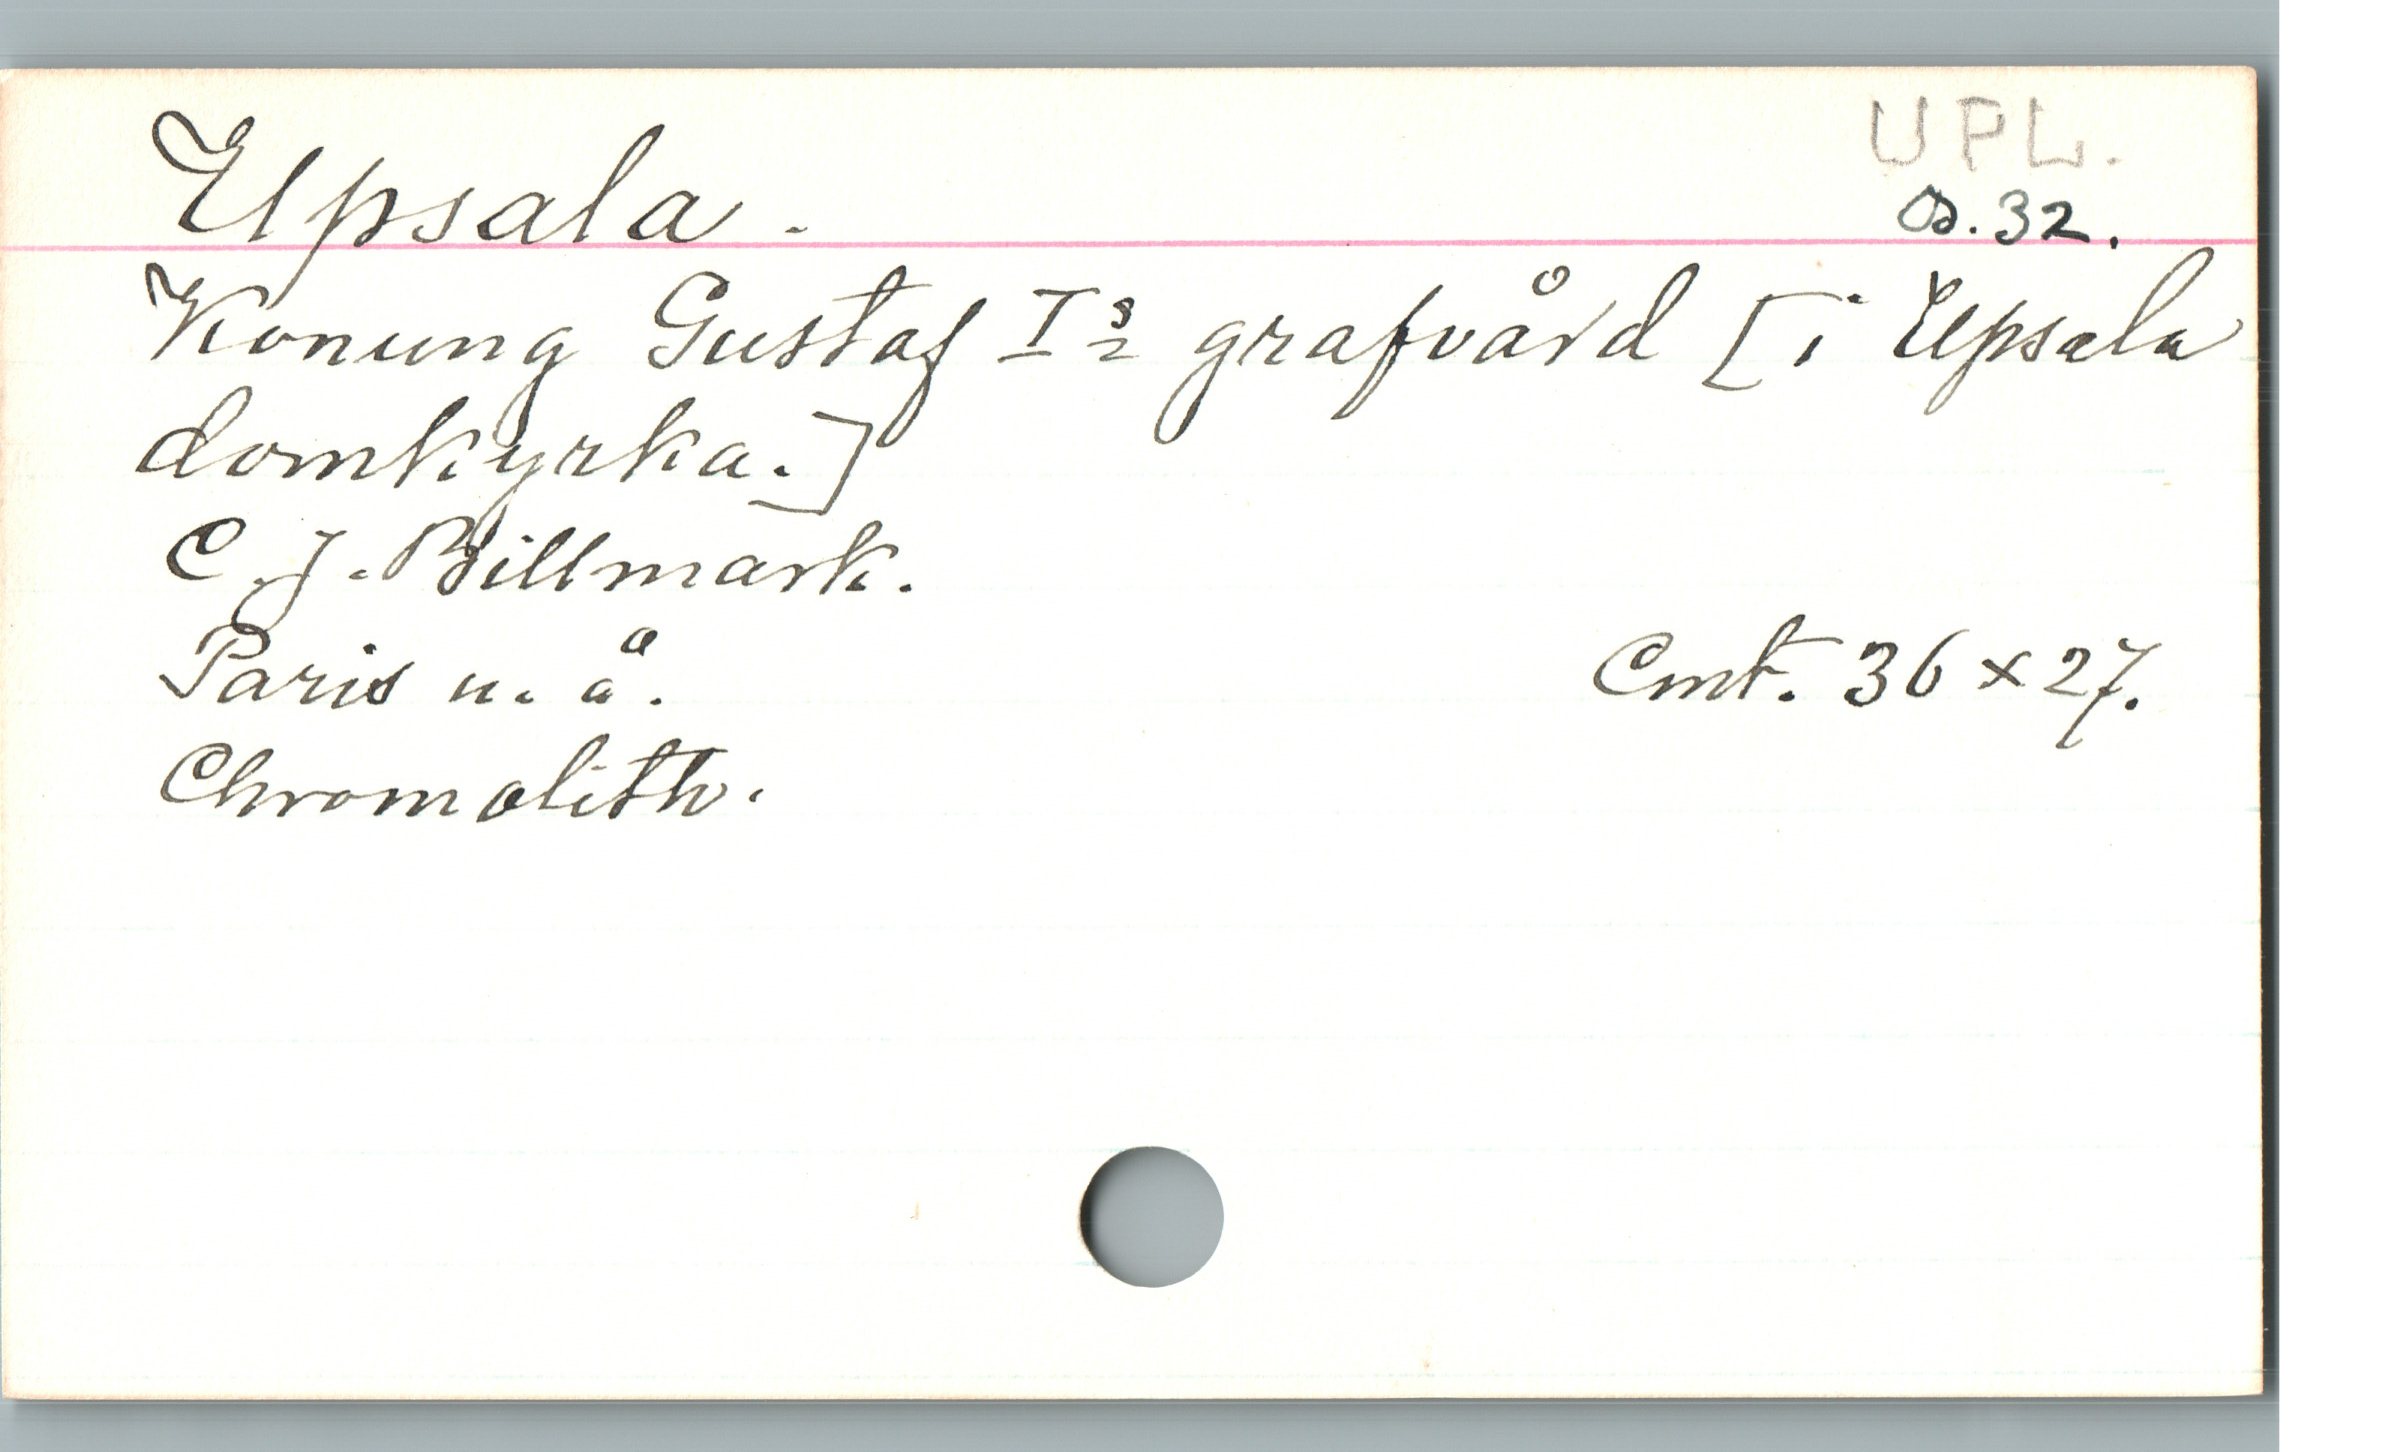 Upsala.
UPL.
32.
Konung Gustaf I:s grafvård [i Upsala
domkyrka.]
C. J. Billmark.
Paris u. å.
Cmt. 36 x 27.
Chromolith.